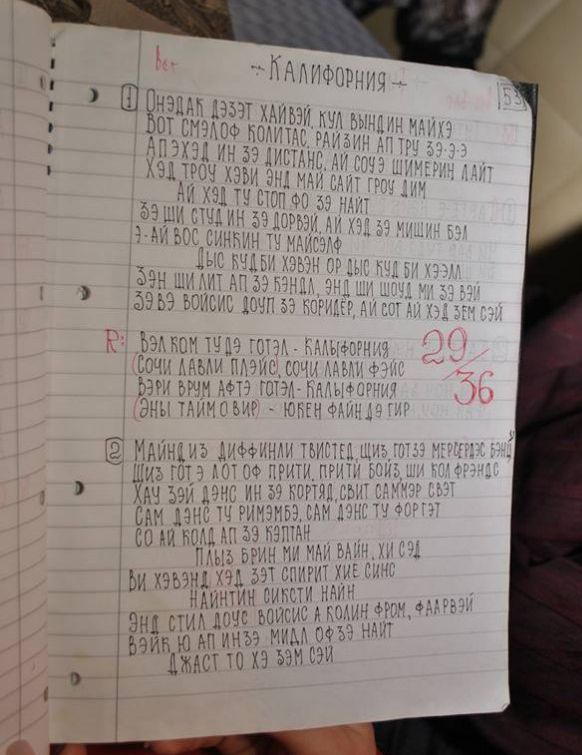 вет
-÷ КАЛИФОРНИЯ ÷-
53
1 ОНЭДАК ДЭЗЭТ ХАЙВЭЙ, КУЛ ВЫНДИН МАЙХЭ
ВОТ СМЭЛОФ КОЛИТАС, РАЙЗИН АП ТРУ ЗЭ-Э-Э
АПЭХЭД ИН ЗЭ ДИСТАНС, АЙ СОУЭ ШИМЕРИН ЛАЙТ
ХЭД ТРОУ ХЭВИ ЭНД МАЙ САЙТ ГРОУ ДИМ
АЙ ХЭД ТУ СТОП ФО ЗЭ НАЙТ
ЗЭ ШИ СТУД ИН ЗЭ ДОРВЭЙ, АЙ ХЭД ЗЭ МИШИН БЭЛ
Э-АЙ ВОС СИНКИН ТУ МАЙСЭЛФ
ДЫС КУД БИ ХЭВЭН ОР ДЫС КУД БИ ХЭЭЛЛ
ЗЭН ШИ ЛИТ АП ЗЭ КЭНДЛ, ЭНД ШИ ШОУД МИ ЗЭ ВЭЙ
ЗЭ ВЭ ВОЙСИС ДОУП ЗЭ КОРИДЁР, АЙ СОТ АЙ ХЭД ЗЕМ СЭЙ
R: ВЭЛКОМ ТУ ДЭ ГОТЭЛ - КАЛЫФОРНИЯ
(СОЧИ ЛАВЛИ ПЛЭЙС), СОЧИ ЛАВЛИ ФЭЙС
ВЭРИ ВРУМ АФТЭ ГОТЭЛ - КАЛЫФОРНИЯ
(ЭНЫ ТАЙМ О ВИР) - ЮКЕН ФАЙН ДЭ ГИР
29/36
2 МАЙНД ИЗ ДИФФИНЛИ ТВИСТЕД, ЩИЗ ГОТ ЗЭ МЕРСЕРДЭС БЭНЦ
ЩИЗ ГОТ Э ЛОТ ОФ ПРИТИ, ПРИТИ БОЙЗ, ШИ КОЛ ФРЭНДС
ХАУ ЗЭЙ ДЭНС ИН ЗЭ КОРТЯД, СВИТ САММЭР СВЭТ
САМ ДЭНС ТУ РИМЭМБЭ, САМ ДЭНС ТУ ФОРГЭТ
СО АЙ КОЛД АП ЗЭ КЭПТАН
ПЛЫЗ БРИН МИ МАЙ ВАЙН, ХИ СЭД
ВИ ХЭВЭНД ХЭД ЗЭТ СПИРИТ ХИЕ СИНС
НАЙНТИН СИКСТИ НАЙН
ЭНД СТИЛ ДОУС ВОЙСИС А КОЛИН ФРОМ, ФААРВЭЙ
ВЭЙК Ю АП ИН ЗЭ МИДЛ ОФ ЗЭ НАЙТ
ДЖАСТ ТО ХЭ ЗЭМ СЭЙ